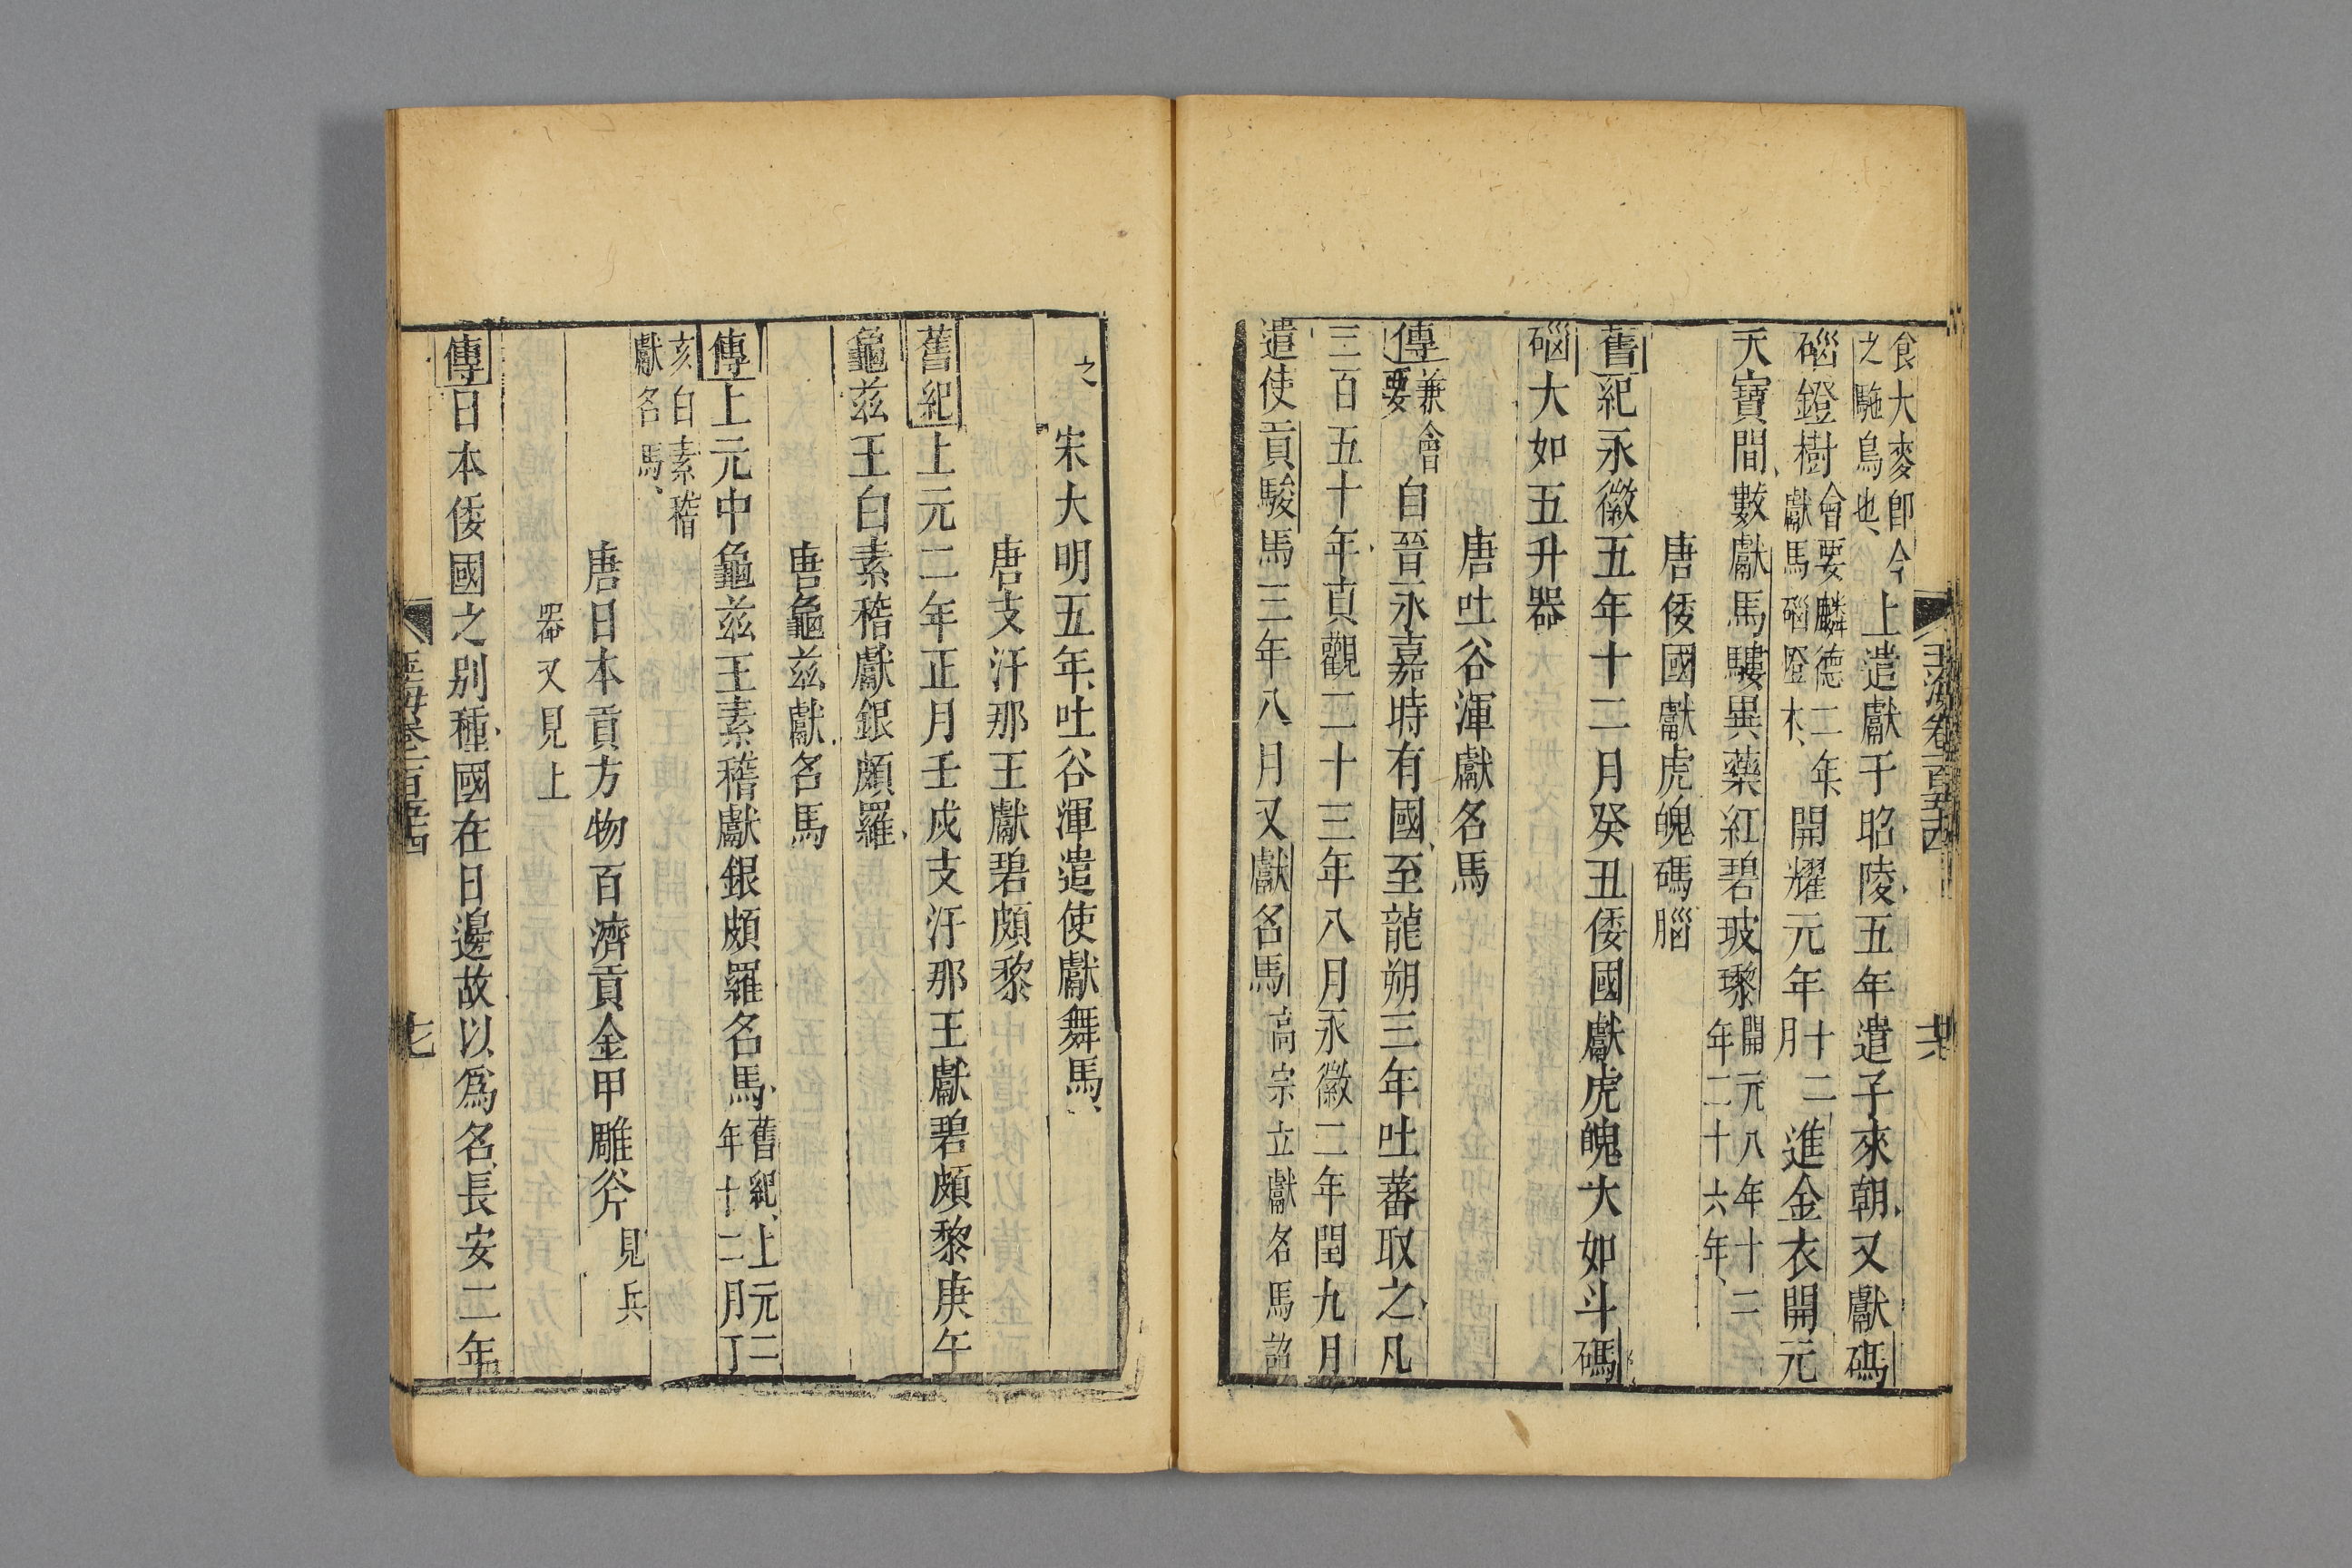 食大麥卽今
之駞鳥也
上遣獻于昭陵五年遣子來朝又獻碼
碯鐙樹
會要麟德二年
獻馬碯隥木
開耀元年
十二
月
進金衣開元
天寶間數獻馬騾異藥紅碧玻瓈
開元八年十二
年二十六年
唐倭國獻虎魄碼腦
舊紀永徽五年十二月癸丑倭國獻虎魄大如斗碼
碯大如五升器
唐吐谷渾獻名馬
傳
兼會
要
自晉永嘉時有國至龍朔三年吐蕃取之凡
三百五十年貞觀二十三年八月永徽二年閏九月
遣使貢駿馬三年八月又獻名馬
高宗立獻名馬詔
玉海卷一百五十四
之
宋大明五年吐谷渾遣使獻舞馬
唐支汗那王獻碧頗黎
舊紀上元二年正月壬戌支汗那王獻碧頗黎庚午
龜茲王白素稽獻銀頗羅
唐龜茲獻名馬
傳上元中龜茲王素稽獻銀頗羅名馬
舊紀上元二
年十二月丁
亥白素稽
獻名馬
唐日本貢方物百濟貢金甲雕斧
見兵
器又見上
傳日本倭國之別種國在日邊故以爲名長安二年
玉海卷一百五十四